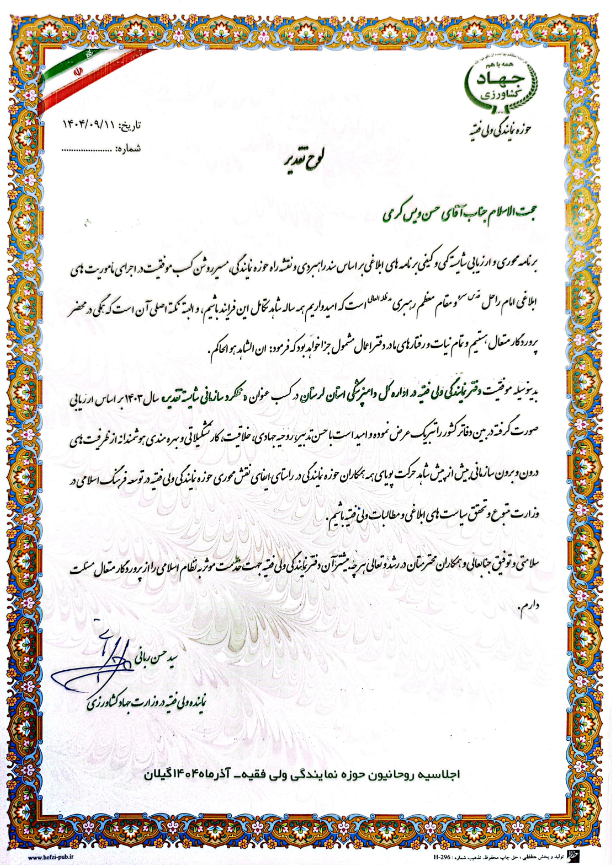 همه با هم
جهاد
کشاورزی
حوزه نمایندگی ولی فقیه
تاریخ: ۱۴۰۴/۰۹/۱۱
شماره: ....................
لوح تقدیر
حجت الاسلام جناب آقای حسن ویس کرمی
برنامه محوری و ارزیابی شایسته کمی و کیفی برنامه های ابلاغی بر اساس سند راهبردی و نقشه راه حوزه نمایندگی، مسیر روشن کسب موفقیت در اجرای ماموریت های
ابلاغی امام راحل قدس سره و مقام معظم رهبری مدظله العالی است که امیدواریم همه ساله شاهد تکامل این فرایند باشیم، و البته نکته اصلی آن است که همگی در محضر
پروردگار متعال هستیم و تمام نیات و رفتارهای ما در دفتر اعمال مشمول جزا خواهد بود که فرمود: ان الشاهد هو الحاکم.
بدینوسیله موفقیت دفتر نمایندگی ولی فقیه در اداره کل دامپزشکی استان لرستان در کسب عنوان «عملکرد سازمانی شایسته تقدیر» سال ۱۴۰۳ بر اساس ارزیابی
صورت گرفته در بین دفاتر کشور را تبریک عرض نموده و امید است با حسن تدبیر، روحیه جهادی، خلاقیت، کار تشکیلاتی و بهره مندی هوشمندانه از ظرفیت های
درون و برون سازمانی بیش از پیش شاهد حرکت پویای همه همکاران حوزه نمایندگی در راستای ایفای نقش محوری حوزه نمایندگی ولی فقیه در توسعه فرهنگ اسلامی در
وزارت متبوع و تحقق سیاست های ابلاغی و مطالبات ولی فقیه باشیم.
سلامتی و توفیق جنابعالی و همکاران محترمتان در رشد و تعالی هر چه بیشتر آن دفتر نمایندگی ولی فقیه جهت خدمت موثر به نظام اسلامی را از پروردگار متعال مسئلت
دارم.
سید حسن ربانی
نماینده ولی فقیه در وزارت جهاد کشاورزی
اجلاسیه روحانیون حوزه نمایندگی ولی فقیه- آذر ماه ۱۴۰۴ گیلان
www.hefzi-pub.ir
تولید و پخش حفظی ، حق چاپ محفوظ. تذهیب شماره : H-296